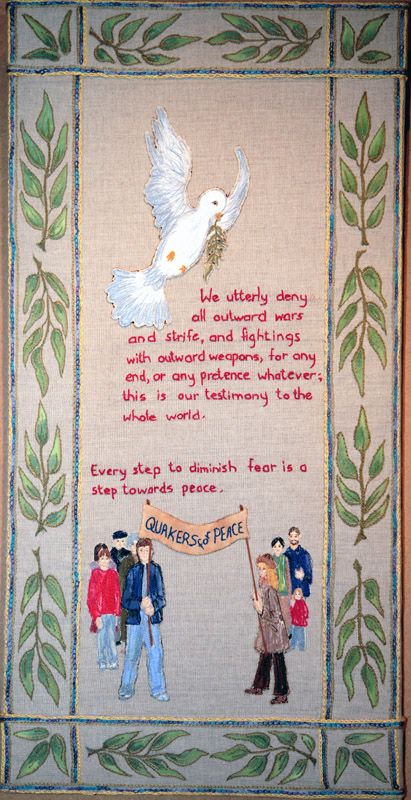 We utterly deny
all outward wars
and strife, and fightings
with outward weapons, for any
end, or any pretence whatever;
this is our testimony to the
whole world.
Every step to diminish fear is a
step towards peace.
QUAKERS PEACE